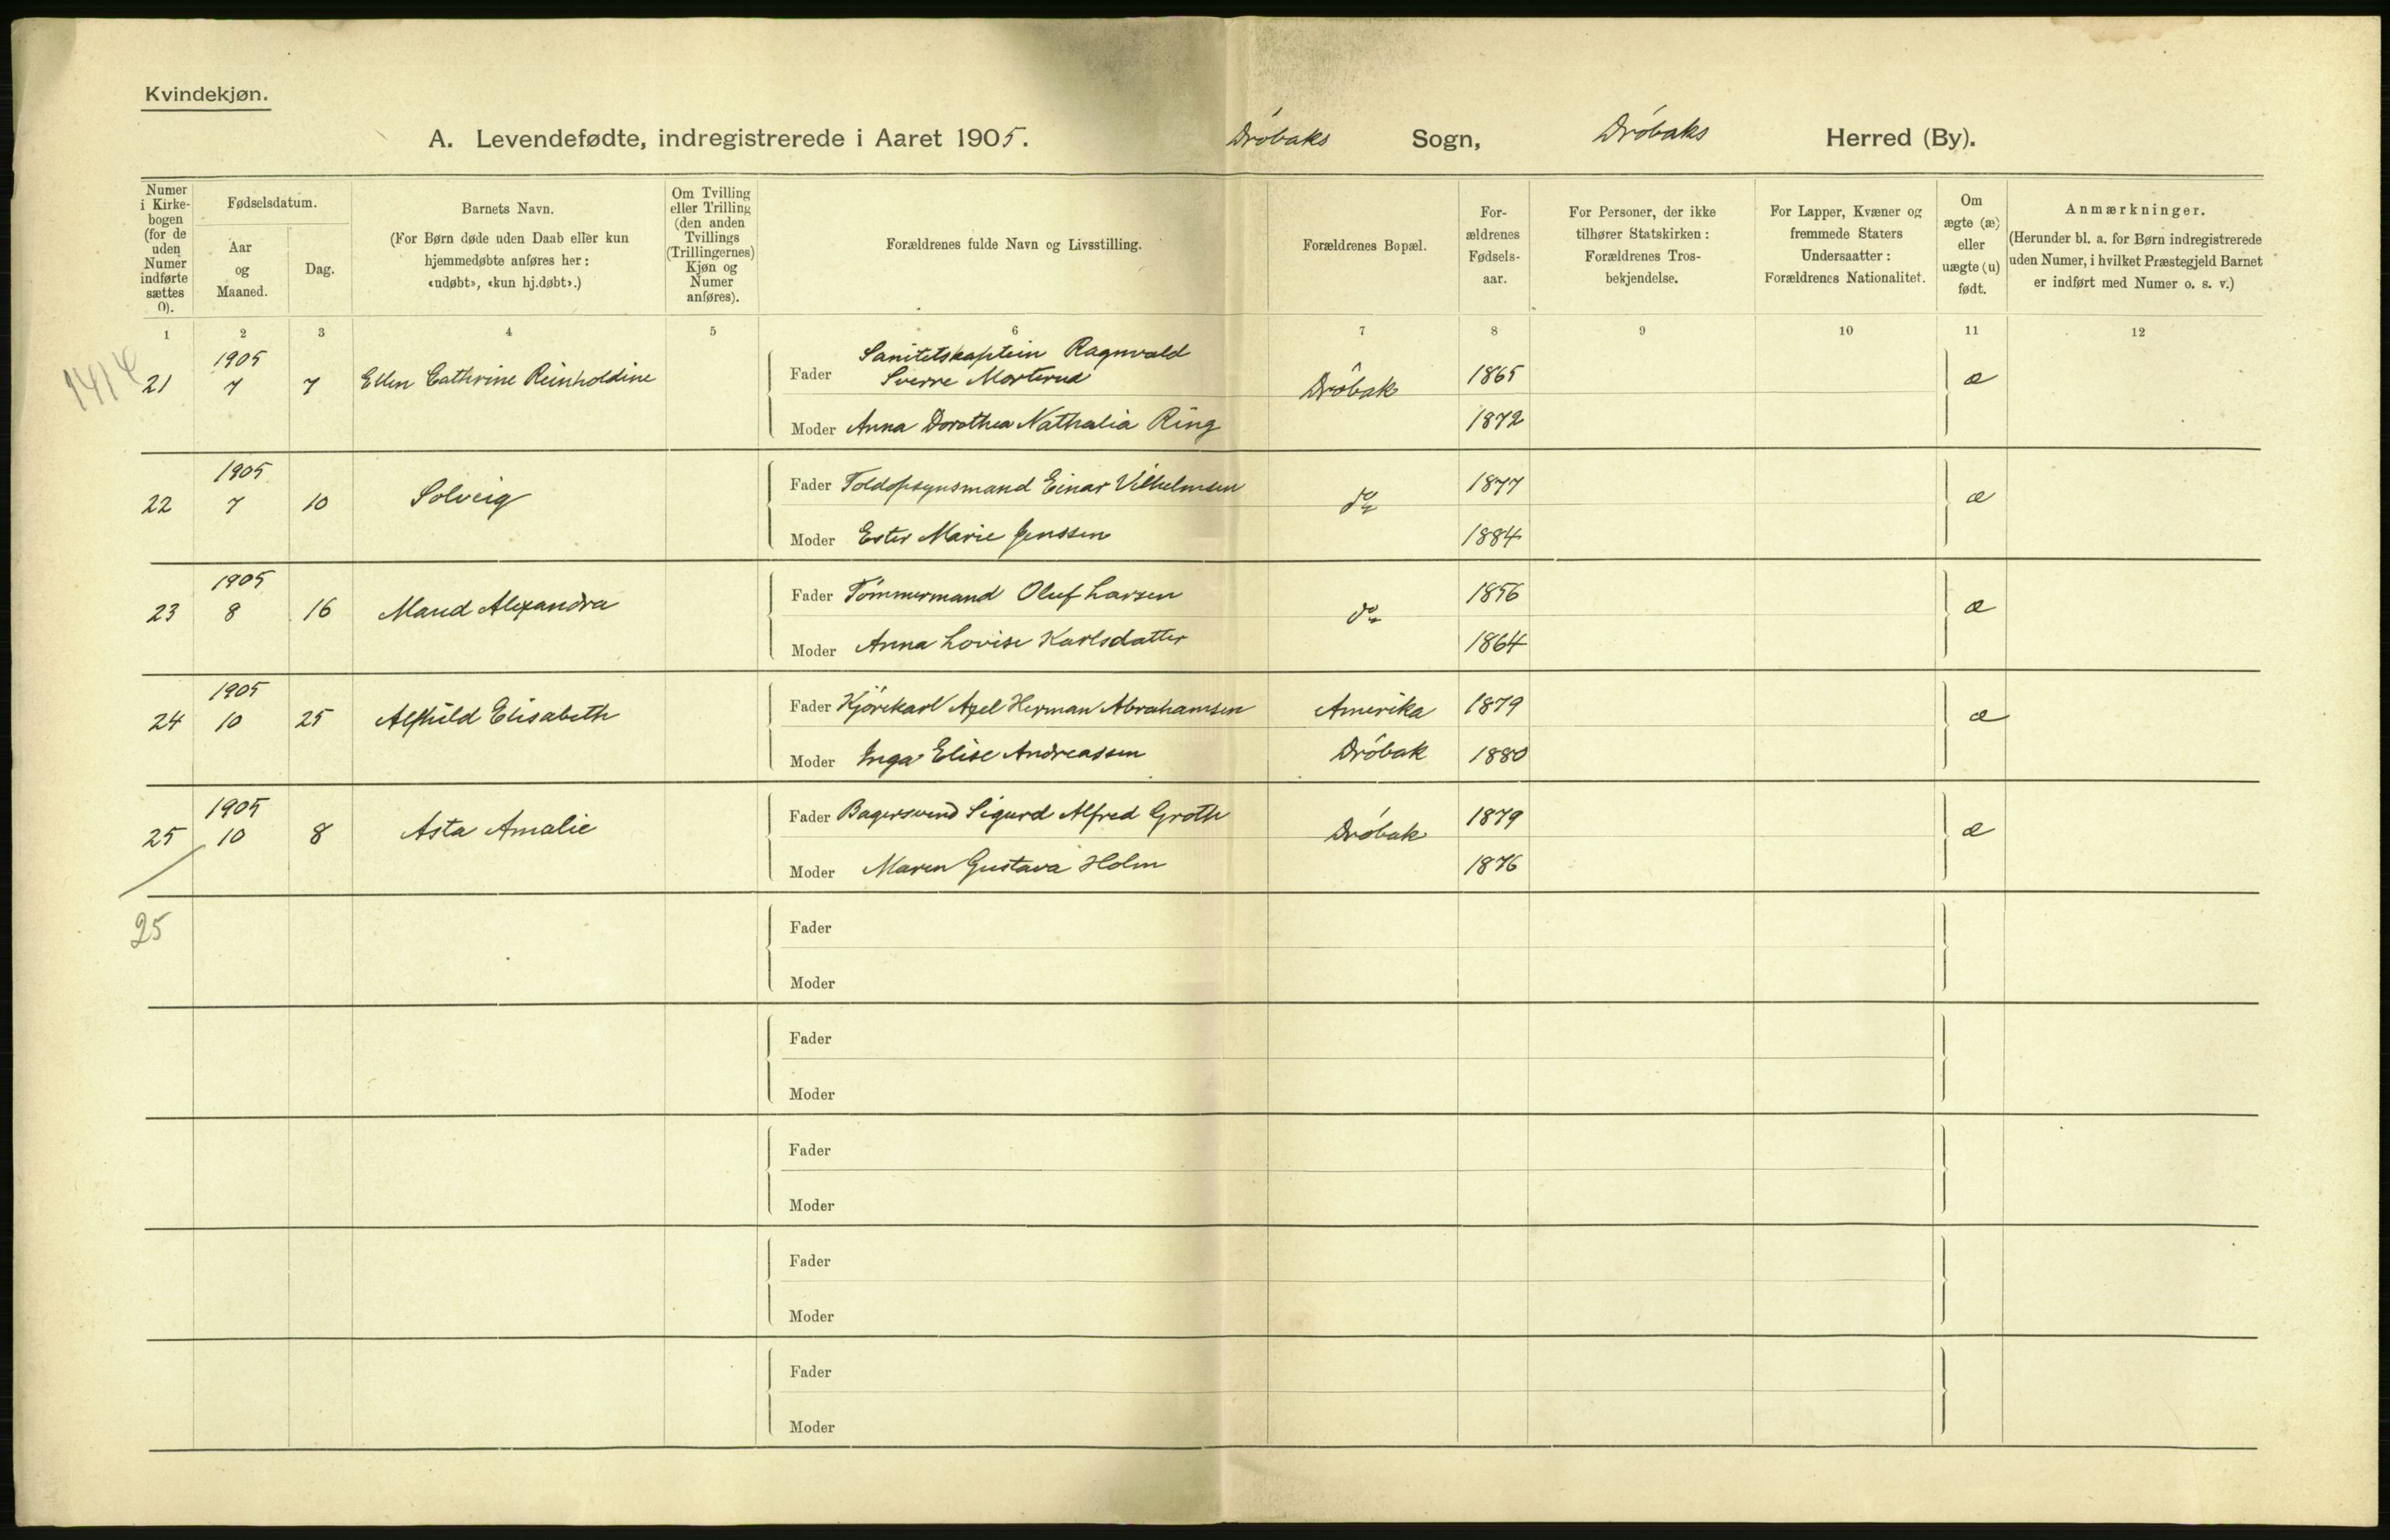 Kvindekjøn.
A. Levendefødte, indregistrerede i Aaret 1905. Drøbaks Sogn, Drøbaks Herred (By).
Numer i Kirkebogen (for de uden Numer indførte sættes 0).
Fødselsdatum.
Aar og Maaned.
Dag.
Barnets Navn.
(For Børn døde uden Daab eller kun
hjemmedøbte anføres her:
«udøbt», «kun hj.døbt».)
Om Tvilling
eller Trilling
(den anden
Tvillings
(Trillingernes)
Kjøn og
Numer
anføres).
Forældrenes fulde Navn og Livsstilling.
Forældrenes Bopæl.
For-
ældrenes
Fødsels-
aar.
For Personer, der ikke
tilhører Statskirken:
Forældrenes Tros-
bekjendelse.
For Lapper, Kvæner og
fremmede Staters
Undersaatter:
Forældrenes Nationalitet.
Om
ægte (æ)
eller
uægte (u)
født.
Anmærkninger.
(Herunder bl. a. for Børn indregistrerede
uden Numer, i hvilket Præstegjeld Barnet
er indført med Numer o. s. v.)
1 2 3 4 5 6 7 8 9 10 11 12
21 1905 7 7 Ellen Cathrine Reinholdine Fader Sanitetskaptein Ragnvald
Sverre Morterud Drøbak 1865 æ
Moder Anna Dorothea Nathalia Ring 1872
22 1905 7 10 Solveig Fader Toldopsynsmand Einar Vilhelmsen do 1877 æ
Moder Ester Marie Jenssen 1884
23 1905 8 16 Maud Alexandra Fader Tömmermand Oluf Larsen do 1856 æ
Moder Anna Lovise Karlsdatter 1864
24 1905 10 25 Alfhild Elisabeth Fader Kjörekarl Axel Herman Abrahamsen Amerika 1879 æ
Moder Inga Elise Andreassen Drøbak 1880
25 1905 10 8 Asta Amalie Fader Bagersvend Sigurd Alfred Groth Drøbak 1879 æ
Moder Maren Gustava Holm 1876
25
Fader
Moder
Fader
Moder
Fader
Moder
Fader
Moder
Fader
Moder